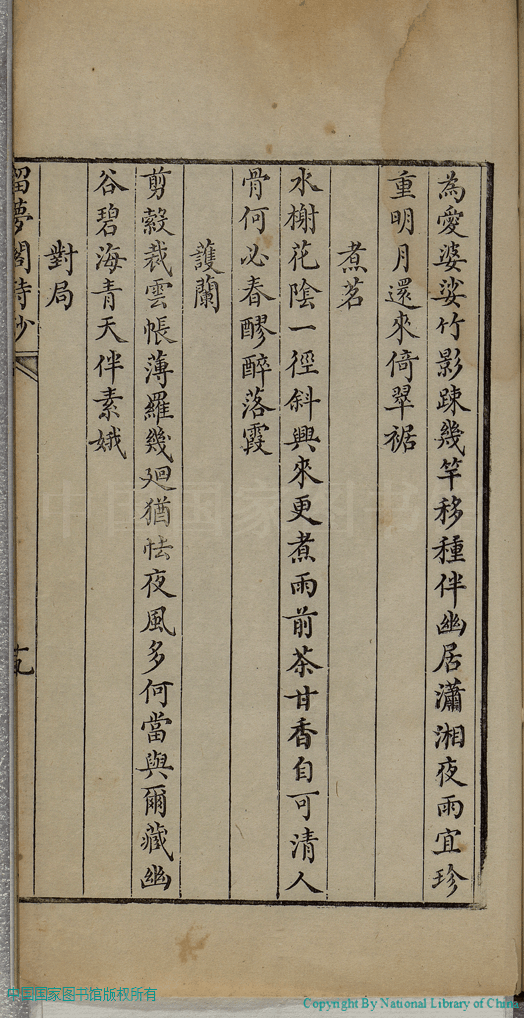 為愛婆娑竹影踈幾竿移種伴幽居瀟湘夜雨宜珍
重明月還來倚翠裾
煮茗
水榭花陰一徑斜興來更煮雨前茶甘香自可清人
骨何必春醪醉落霞
護蘭
剪縠裁雲帳薄羅幾廻猶怯夜風多何當與爾藏幽
谷碧海青天伴素娥
對局
留夢閣詩鈔
十九
中国国家图书馆
中国国家图书馆版权所有
Copyright By National Library of China